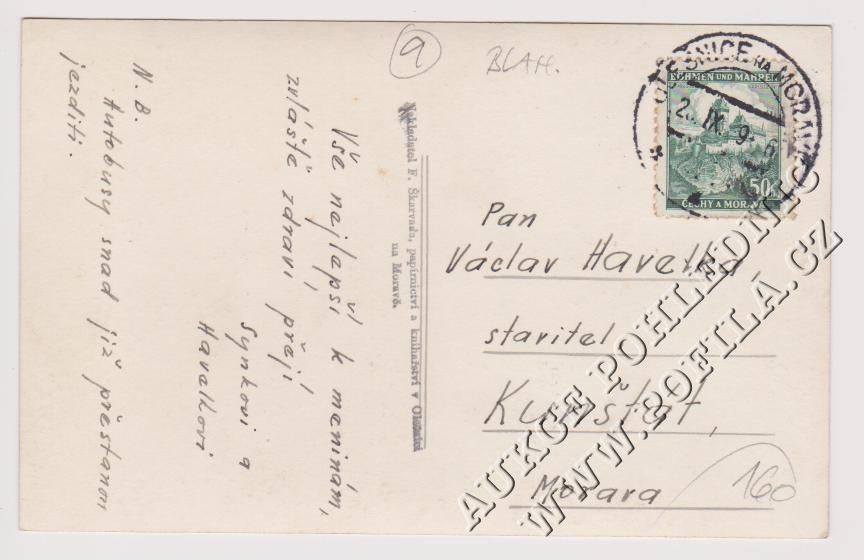 9
BLAH.
OLEŠNICE NA MORAVĚ
2. IX. 9- 6
BÖHMEN UND MÄHREN
50
ČECHY A MORAVA
Vše nejlepší k meninám,
zvláště zdraví přejí
Synkovi a
Havelkovi
N. B.
Autobusy snad již přestanou
jezditi.
Nakladatel F. Škarvada, papírnictví a knihařství v Olešnici
na Moravě.
Pan
Václav Havelka,
stavitel
Kunštát,
Morava
160
AUKCE POHLEDNIC
WWW.POFILA.CZ